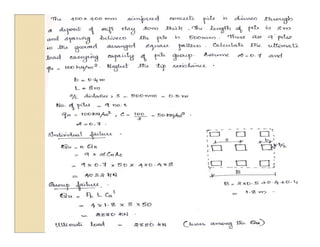 The 400 x 400 mm reinforced concrete pile is driven through
a deposit of soft clay 20m thick. The length of pile is 8m
and spacing between the pile is 500mm. There are 9 piles
in the ground arranged square pattern. Calculate the ultimate
load carrying capacity of pile group. Assume α=0.7 and
qu = 100 kN/m². Neglect the tip resistance.
b = 0.4m
L = 8m
c/c distance, s = 500mm = 0.5m
No. of piles = 9 nos
qu = 100 kN/m², c = 100/2 = 50 kN/m²
α = 0.7
Individual failure
Qu = n Qu
= 9 x α Cu As
= 9 x 0.7 x 50 x 4x0.4x8
= 4032 kN
Group failure
B = 2x0.5+0.4+0.4
= 1.8m
Qu = Pb L Cu
= 4 x 1.8 x 8 x 50
= 2880 kN
Ultimate load = 2880 kN (lesser among the Qu)